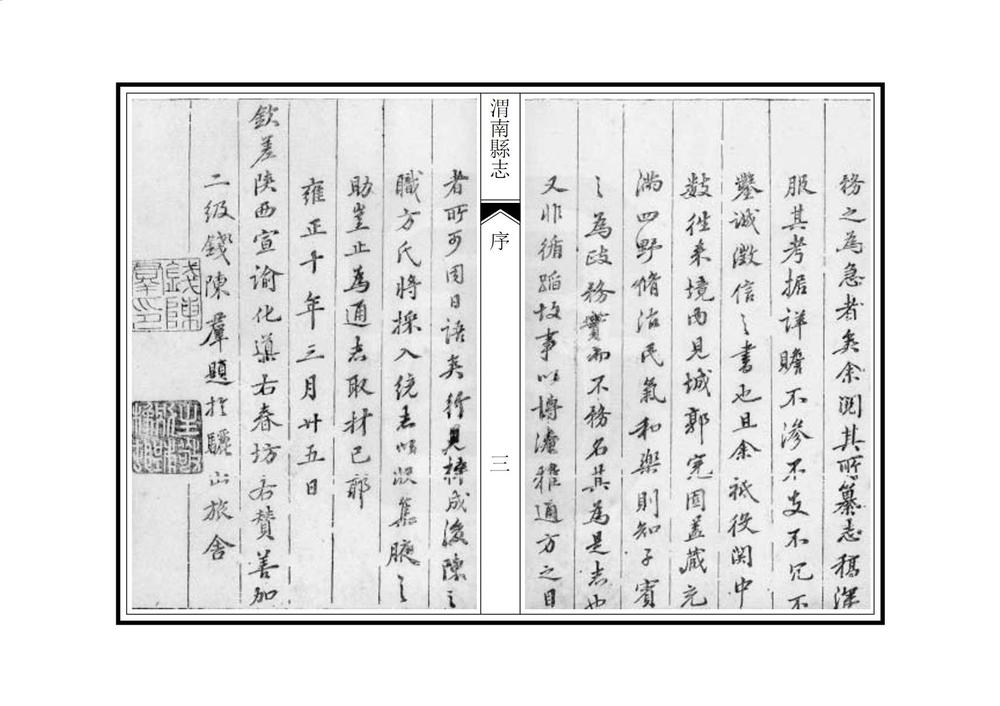 務之為急者矣余閱其所纂志稿深
服其考据詳贍不滲不支不冗不
鑿誠徵信之書也且余祗役関中
數徃来境內見城郭完固蓋藏充
滿四野脩治民氣和樂則知子賓
之為政務實而不務名其為是志也
又非循蹈故事以博淹雅通方之目
渭南縣志
序
三
者所可同日語矣行見梓成後陳之
職方氏將採入統志以狀集腋之
助豈止為通志取材已耶
雍正十年三月廿五日
欽差陝西宣諭化導右春坊右贊善加
二級錢陳羣題於驪山旅舍
錢陳羣印